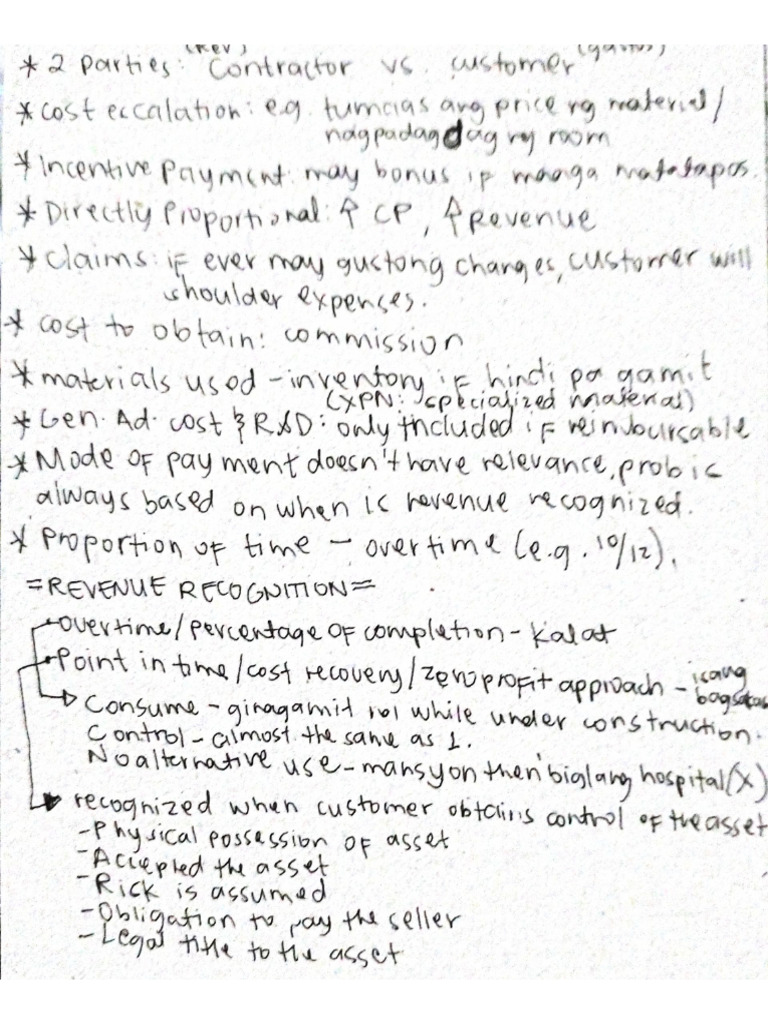 (Rev) (gastos)
* 2 parties: Contractor vs. customer
* cost escalation: e.g. tumaas ang price ng material/
nagpadagdag ng room
* Incentive Payment: may bonus if maaga matatapos.
* Directly Proportional: ↑ CP, ↑ Revenue
* Claims: if ever may gustong changes, customer will
shoulder expenses.
* cost to obtain: commission
* materials used - inventory if hindi pa gamit
(XPN: specialized material)
* Gen. Ad. cost & R&D: only included if reimbursable
* Mode of payment doesn't have relevance, prob is
always based on when is revenue recognized.
* Proportion of time - overtime (e.g. 10/12).
=REVENUE RECOGNITION=
overtime/percentage of completion - kalat
Point in time/cost recovery/zero profit approach - isang
bagsakan
Consume - ginagamit na while under construction.
Control - almost the same as 1.
No alternative use - mansyon then biglang hospital (X)
recognized when customer obtains control of the asset
- Physical possession of asset
- Accepted the asset
- Risk is assumed
- Obligation to pay the seller
- Legal title to the asset